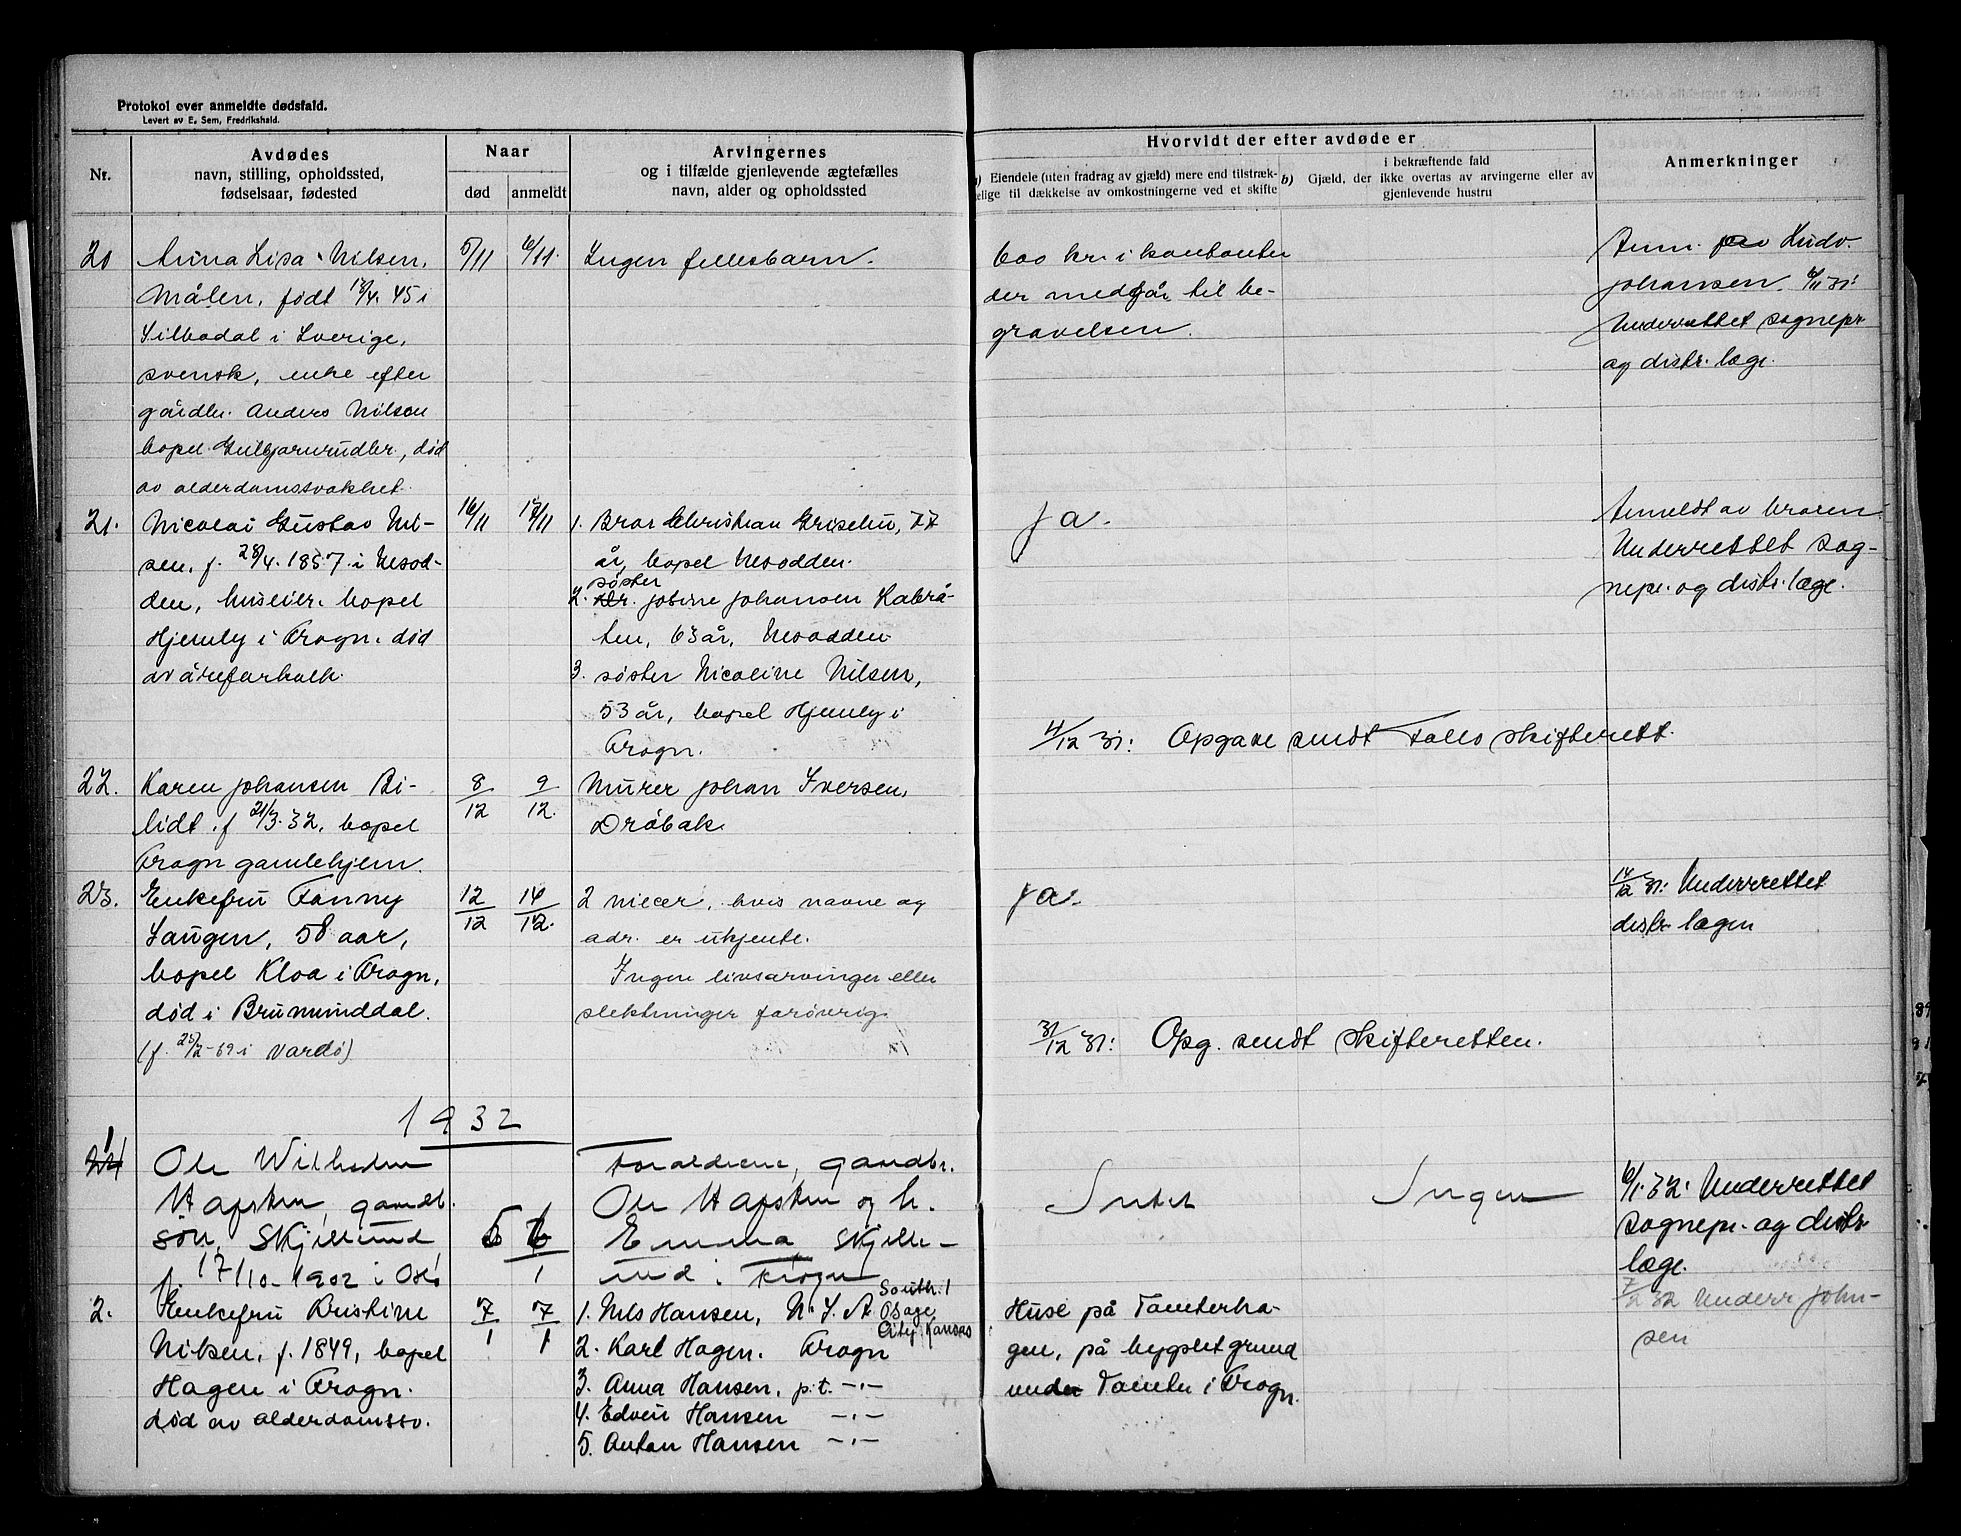 Protokol over anmeldte dødsfald.
Levert av E. Sem, Fredrikshald.
Nr.
Avdødes
navn, stilling, opholdssted,
fødselsaar, fødested
Naar
død
anmeldt
Arvingernes
og i tilfælde gjenlevende ægtefælles
navn, alder og opholdssted
Hvorvidt der efter avdøde er
a) Eiendele (uten fradrag av gjæld) mere end tilstræk-
kelige til dækkelse av omkostningerne ved et skifte
b) Gjæld, der i bekræftende fald
ikke overtas av arvingerne eller av
gjenlevende hustru
Anmerkninger
20
Anna Lisa Nilsen,
Målen, født 13/4 45 i
Silbodal i Sverige,
svensk, enke efter
gårdbr. Anders Nilsen
bopel Gulbjørnrudbr., død
av alderdomssvakhet.
5/11
6/11.
Ingen fellesbarn.
600 kr. i kontanter
der medgår til be-
gravelsen.
Anm. Ludv.
Johansen. 6/11 31:
Underrettet sognepr
og distr. læge.
21.
Nicolai Gustav Nil-
sen, f. 28/4. 1857 i Nesod-
den, huseier. bopel
Hjemly i Frogn. død
av åreforkalk.
16/11
17/11
1. Bror Christian Grisebu, 77
år, bopel Nesodden.
2. søster Josine Johansen Kabrå-
ten, 63 år, Nesodden
3. søster Nicoline Nilsen,
53 år, bopel Hjemly i
Frogn.
ja.
4/12 31: Opgave sendt Follo skifterett.
Anmeldt av broren
Underrettet sog-
nepr. og distr. læge.
22.
Karen Johansen Bi-
lidt. f 21/3. 32, bopel
Frogn gamlehjem.
8/12
9/12.
Murer Johan Iversen,
Drøbak
23.
Enkefru Fanny
Laugen, 58 aar,
bopel Kloa i Frogn,
død i Brumunddal.
(f. 25/2-69 i Vardø)
12/12
14/12.
2 niecer, hvis navne og
adr. er ukjente.
Ingen livsarvinger eller
slektninger forøvrig.
ja.
31/12 31: Opg. sendt skifteretten.
14/12 31: Underrettet
distr. lægen
1932
1
Ole Wilhelm
Hafsten, gaardb.
søn, Skjellund
f. 17/10-1902 i Oslo
5
6/1
Foraldrene, gaardbr.
Ole Hafsten og h.
Emma Skjelle-
und i Frogn
Intet
Ingen
6/1. 32: Underrettet
sognepr. og distr
læge.
2.
Enkefru Kristine
Nilsen, f. 1849, bopel
Hagen i Frogn.
død av alderdomssv.
7/1
7/1
1. Nils Hansen, U. S. A. South.
Osage
City Kansas
2. Karl Hagen. Frogn
3. Anna Hansen, p.t. -"-
4. Edvin Hansen -"-
5. Anton Hansen -"-
Huse på Tomterha-
gen, på bygslet grund
under Tomter i Frogn.
7/2 32 Underr John-
sen